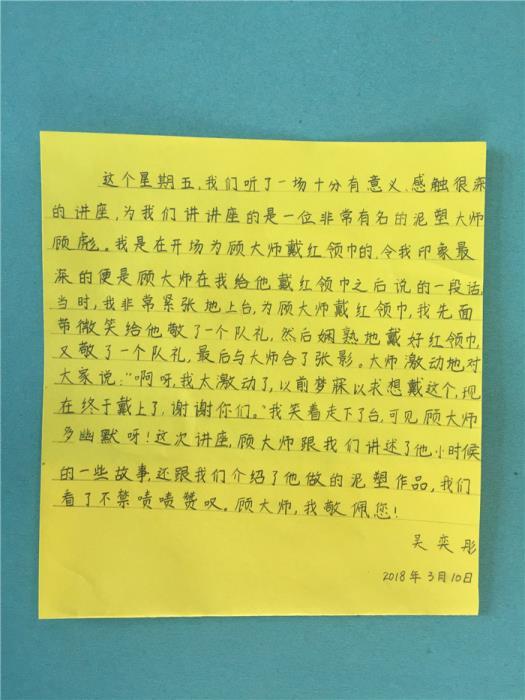 这个星期五,我们听了一场十分有意义、感触很深
的讲座,为我们讲讲座的是一位非常有名的泥塑大师
顾彪。我是在开场为顾大师戴红领巾的,令我印象最
深的便是顾大师在我给他戴红领巾之后说的一段话,
当时,我非常紧张地上台,为顾大师戴红领巾,我先面
带微笑给他敬了一个队礼,然后娴熟地戴好红领巾,
又敬了一个队礼,最后与大师合了张影。大师激动地,对
大家说:“啊呀,我太激动了,以前梦寐以求想戴这个,现
在终于戴上了,谢谢你们。”我笑着走下了台,可见顾大师
多幽默呀!这次讲座,顾大师跟我们讲述了他小时候
的一些故事,还跟我们介绍了他做的泥塑作品,我们
看了不禁啧啧赞叹。顾大师,我敬佩您!
吴奕彤
2018年3月10日